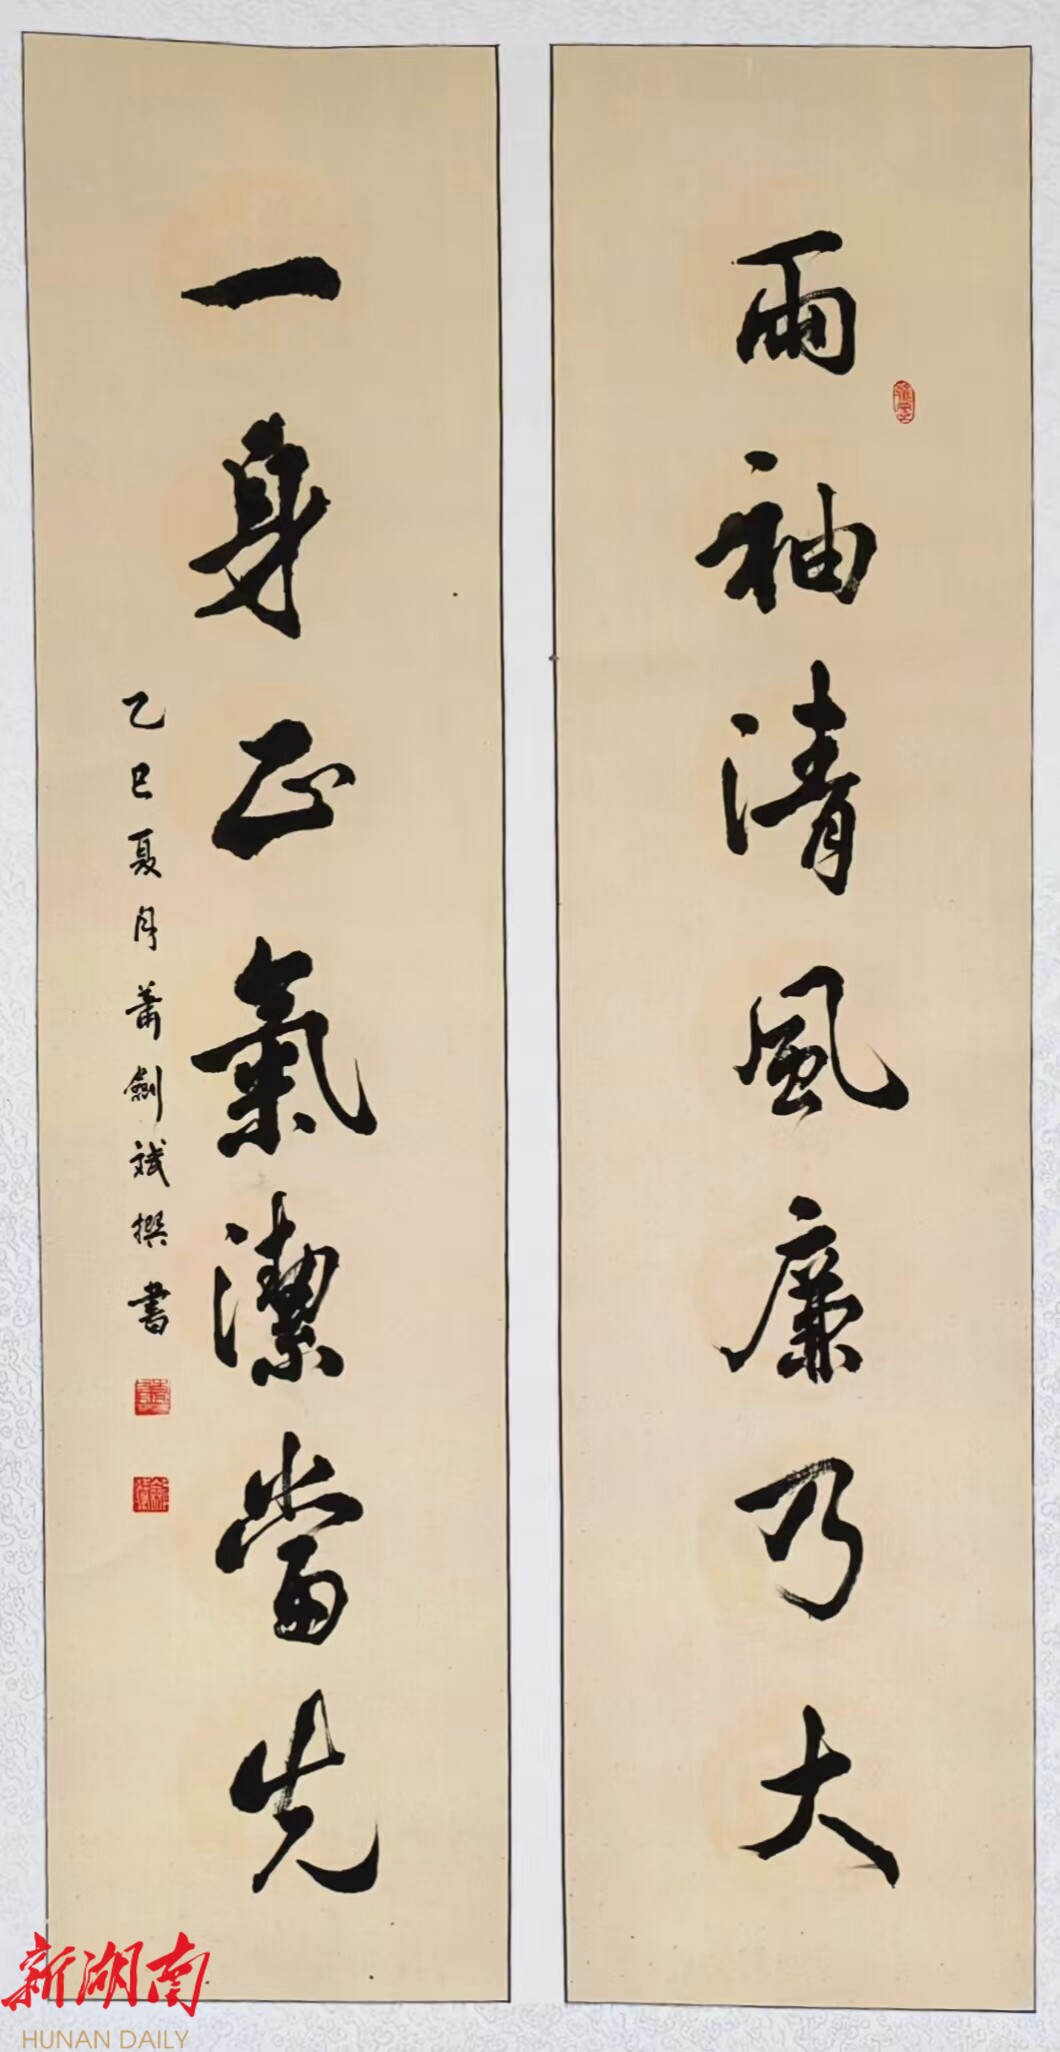 兩袖清風廉乃大
一身正氣潔當先
乙巳夏月蕭劍斌撰書
新湖南
HUNAN DAILY